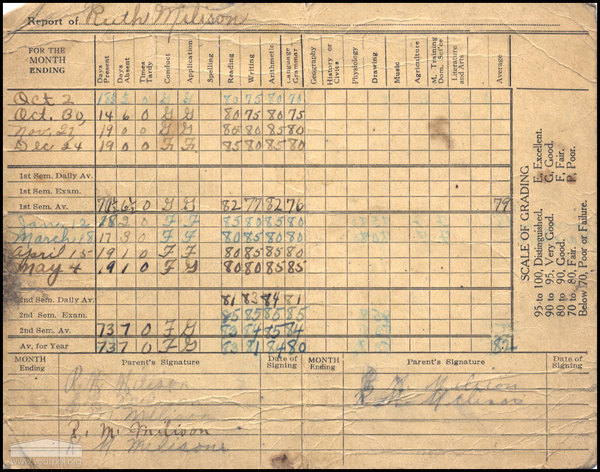 Report of Ruth Milison
FOR THE MONTH ENDING Days Present Days Absent Times Tardy Conduct Application Spelling Reading Writing Arithmetic Language Grammar Geography History or Civics Physiology Drawing Music Agriculture M. Training Dom. Sci'ce Literature and Arts Average
Oct 2 18 2 0 G G 80 75 80 70
Oct. 30, 14 6 0 G G 80 75 80 75
Nov. 27, 19 0 0 G G 85 80 85 80
Dec 24 19 0 0 F F 85 80 85 80
1st Sem. Daily Av.
1st Sem. Exam.
1st Sem. Av. 0 G G 82 77 82 76 79
18 2 F F 85 80 85 80
March 18 17 3 0 F F 80 85 80 80
April 15 19 1 0 F F 80 85 80 80
May 4 19 1 0 F G 80 80 85 85
2nd Sem. Daily Av. 81 83 84 81
2nd Sem. Exam. 85 85 85 85
2nd Sem. Av. 73 7 0 F G 83 84 85 84
Av. for Year 73 7 0 F G 83 81 84 80 82
SCALE OF GRADING
95 to 100, Distinguished. E, Excellent.
90 to 95, Very Good. G, Good.
80 to 90, Good. F, Fair.
70 to 80, Fair. P, Poor.
Below 70, Poor or Failure.
MONTH ENDING Parent's Signature Date of Signing MONTH ENDING Parent's Signature Date of Signing
R. M. Milison
Milison
R. M. Milison
M. Milison
www.yourppl.org